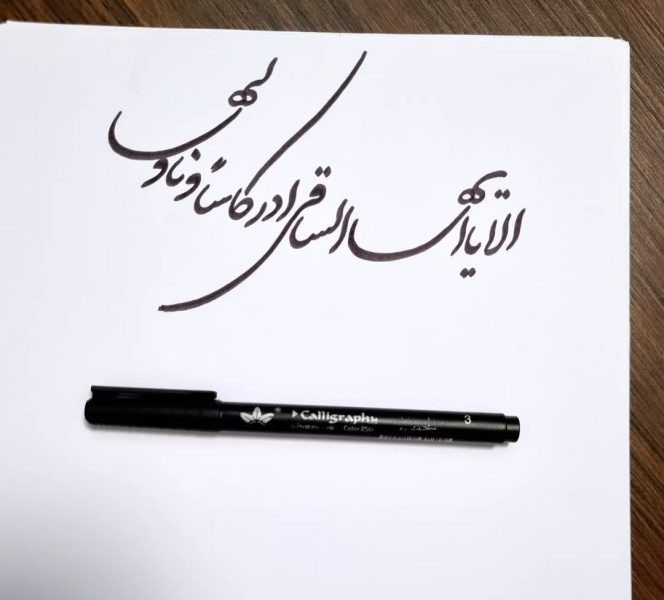 الا یا ایها الساقی ادر کاسا و ناولها
Calligraphy
3